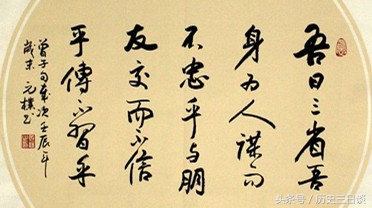 吾日三省吾
身为人谋而
不忠乎与朋
友交而不信
乎傳不習乎
曾子句歲次壬辰年
歲末元樸书
头条号/历史三日谈